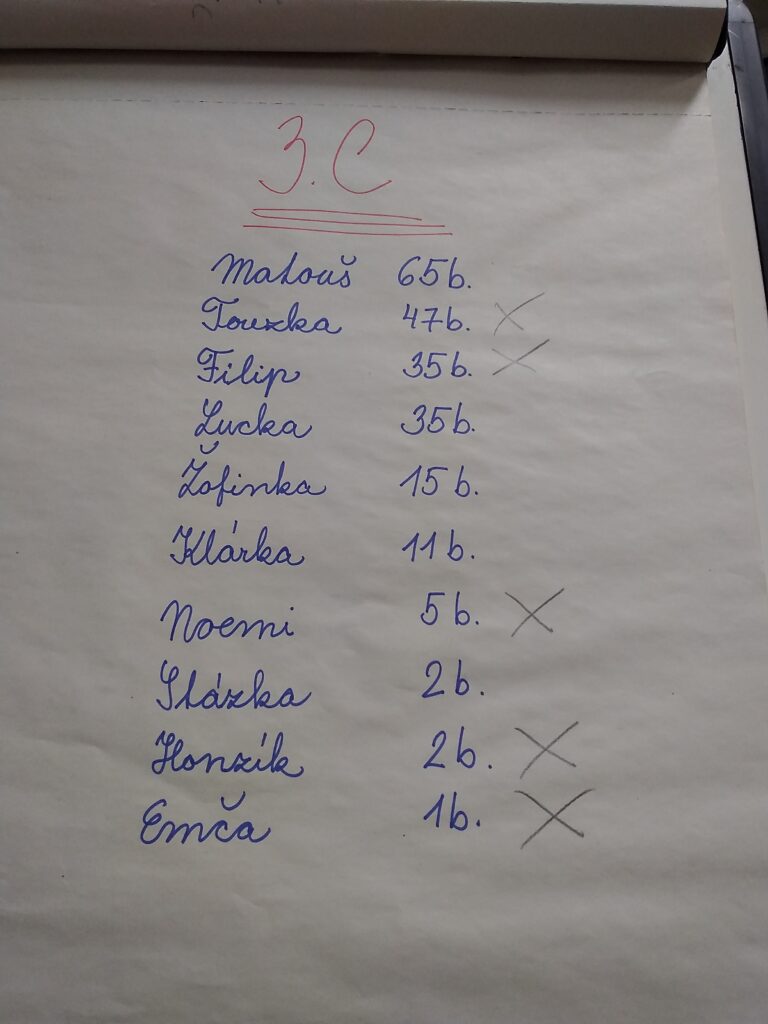 3.C
Matouš 65b.
Touzka 47b.
Filip 35b.
Lucka 35b.
Žofinka 15b.
Klárka 11b.
Noemi 5b.
Stázka 2b.
Honzík 2b.
Emča 1b.